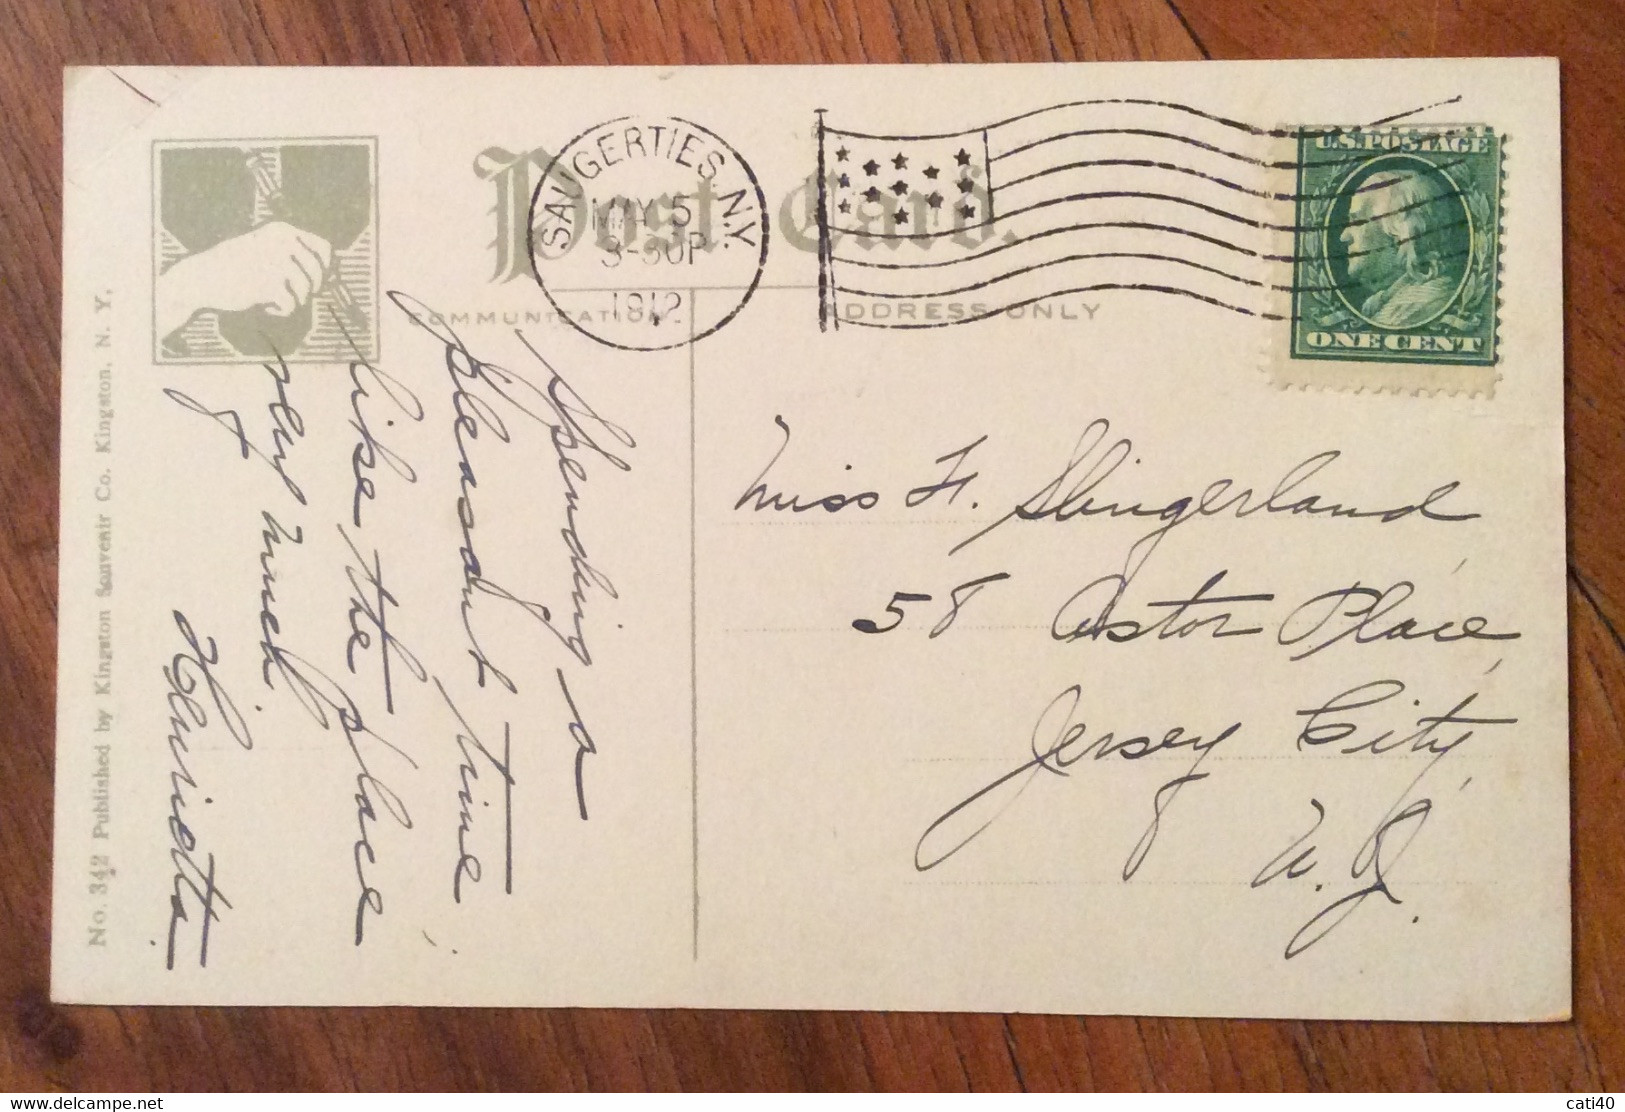 Post Card.
SAUGERTIES, N.Y.
MAY 5
3-30P
1912
U.S. POSTAGE
ONE CENT
COMMUNICATION.
ADDRESS ONLY
Spending a
pleasant time
like the place
very much.
Henrietta.
Miss F. Slingerland
58 Astor Place,
Jersey City,
N. J.
No. 342 Published by Kingston Souvenir Co. Kingston, N. Y.
cati40